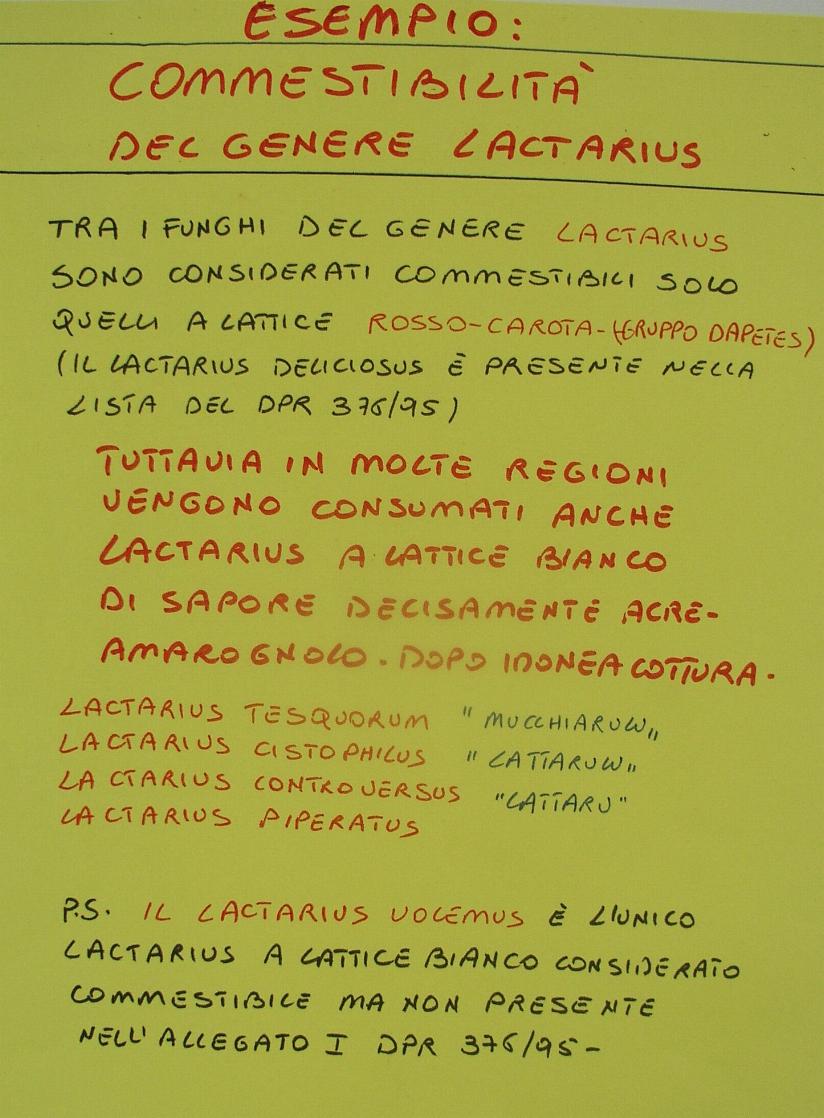 ESEMPIO:
COMMESTIBILITÀ
DEL GENERE LACTARIUS
TRA I FUNGHI DEL GENERE LACTARIUS
SONO CONSIDERATI COMMESTIBILI SOLO
QUELLI A LATTICE ROSSO-CAROTA-(GRUPPO DAPETES)
(IL LACTARIUS DELICIOSUS È PRESENTE NELLA
LISTA DEL DPR 376/95)
TUTTAVIA IN MOLTE REGIONI
VENGONO CONSUMATI ANCHE
LACTARIUS A LATTICE BIANCO
DI SAPORE DECISAMENTE ACRE-
AMAROGNOLO. DOPO IDONEA COTTURA.
LACTARIUS TESQUORUM "MUCCHIARULU"
LACTARIUS CISTOPHILUS "LATTARULU"
LACTARIUS CONTROVERSUS "LATTARU"
LACTARIUS PIPERATUS
P.S. IL LACTARIUS VOLEMUS È L'UNICO
LACTARIUS A LATTICE BIANCO CONSIDERATO
COMMESTIBILE MA NON PRESENTE
NELL'ALLEGATO I DPR 376/95-